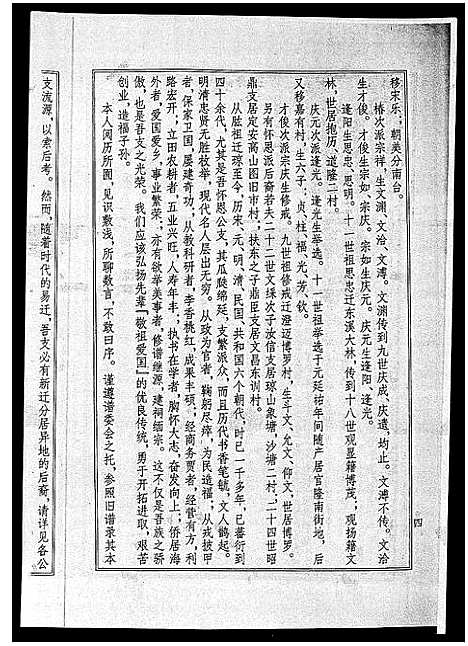 移宋乐，朝美分南台。
椿次派宗祥，生文渊、文洽、文溥。文渊传到九世庆成、庆遣，均止。文溥不传。文洽
生才俊。才俊生宗如、宗庆。宗如生庆元。庆元生逢阳、逢光。
逢阳生思忠、思明。十一世祖思忠迁东溪大林，传到十八世观显籍博茂；观扬籍文
林，世居抱历、道隆二村。
庆元次派逢光。逢光生举选。十一世祖举选于元延祐年间随产居官隆南街地，后
又移嘉有村，生六子：贞、柱、福、光、芳、钦。
才俊次派宗庆生修戒。九世祖修戒迁澄迈博罗村，生斗文、允文、仰文，世居博罗。
另有怀恩派后裔若夫二十二世文䌽次子汝信支居琼山象塘，沙塘二村；二十四世昭
鼎支居定安高山图旧市村；扶东之子鼎臣支居文昌东训村。
从肱祖迁琼至今，历宋、元、明、清、民国、共和国六个朝代，时已一千多年，已蕃衍到
四十余代，尤其是吾怀恩公文，其瓜瓞绵延，支繁派众，而且历代书香笔毓，文人鹊起。
明清忠贤无胜枚举，现代名人层出无穷。从政为官者，鞠躬尽瘁，为民造福；从戎披甲
者，保家卫国，屡建奇功；从教科研者，李香桃红，成果丰硕；经商务贾者，经营有方，利
路宏开，立田农耕者，五业兴旺，人寿年丰；执书在学者，胸怀大志，奋发向上；侨居海
外者，爱国爱乡，事业繁荣；亦有欲举美事者，修谱继源，建祠缅宗。这不仅是吾族之骄
傲，也是吾支之光荣。我们应该弘扬先辈『敬祖爱国』的优良传统，勇于开拓进取，艰苦
创业，造福子孙。
本人阅历所囿，见识敷浅，所聊数言，不敢曰序。谨遵谱委会之托，参照旧谱录其本
支流源，以索后考。然而，随着时代的易迁，吾支必有新迁分居异地的后裔，请详见各公
四